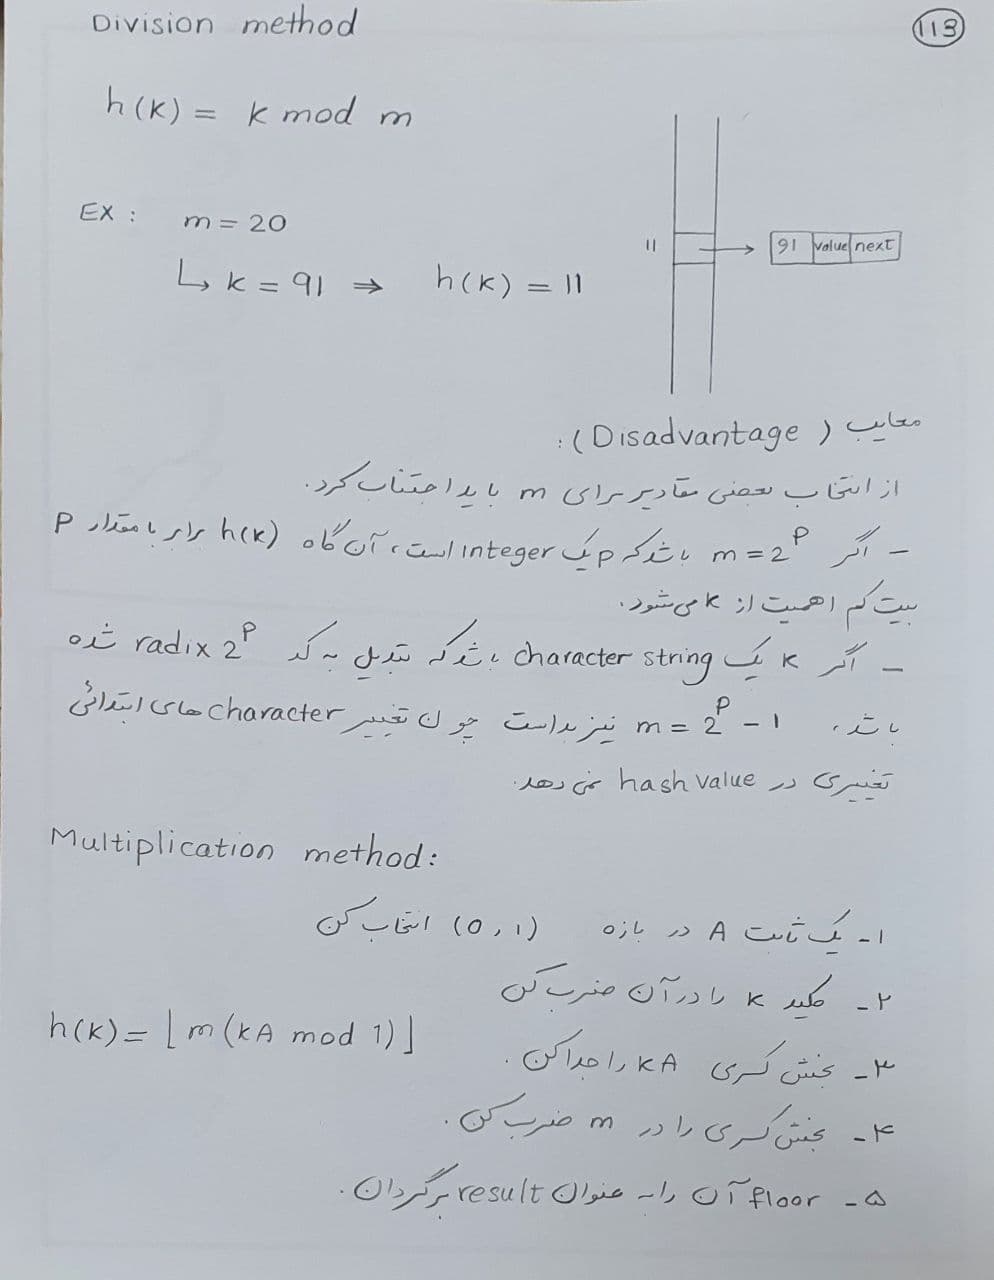 Division method
113
h(k) = k mod m
Ex : m = 20
↳ k = 91 ⇒ h(k) = 11
11 → 91 value next
معایب (Disadvantage) :
از انتخاب بعضی مقادیر برای m باید اجتناب کرد.
- اگر m = 2^P باشد که p یک integer است، آن گاه h(k) برابر با مقدار P
بیت کم اهمیت از k می شود.
- اگر k یک character string باشد که تبدیل به کد radix 2^P شده
باشد، m = 2^P - 1 نیز بد است چون تغییر character های ابتدائی
تغییری در hash value نمی دهد.
Multiplication method:
۱- یک ثابت A در بازه (0,1) انتخاب کن
۲- کلید k را در آن ضرب کن
h(k) = ⌊m(kA mod 1)⌋
۳- بخش کسری kA را جدا کن.
۴- بخش کسری را در m ضرب کن.
۵- floor آن را به عنوان result برگردان.